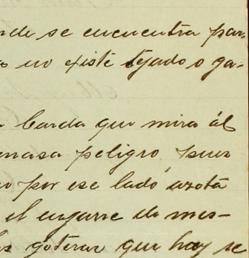 de se encuentra par
no existe tejado o ga-
barda que mira ál
enasa peligro, pues
por ese lado, azota
el
goteras que hay se